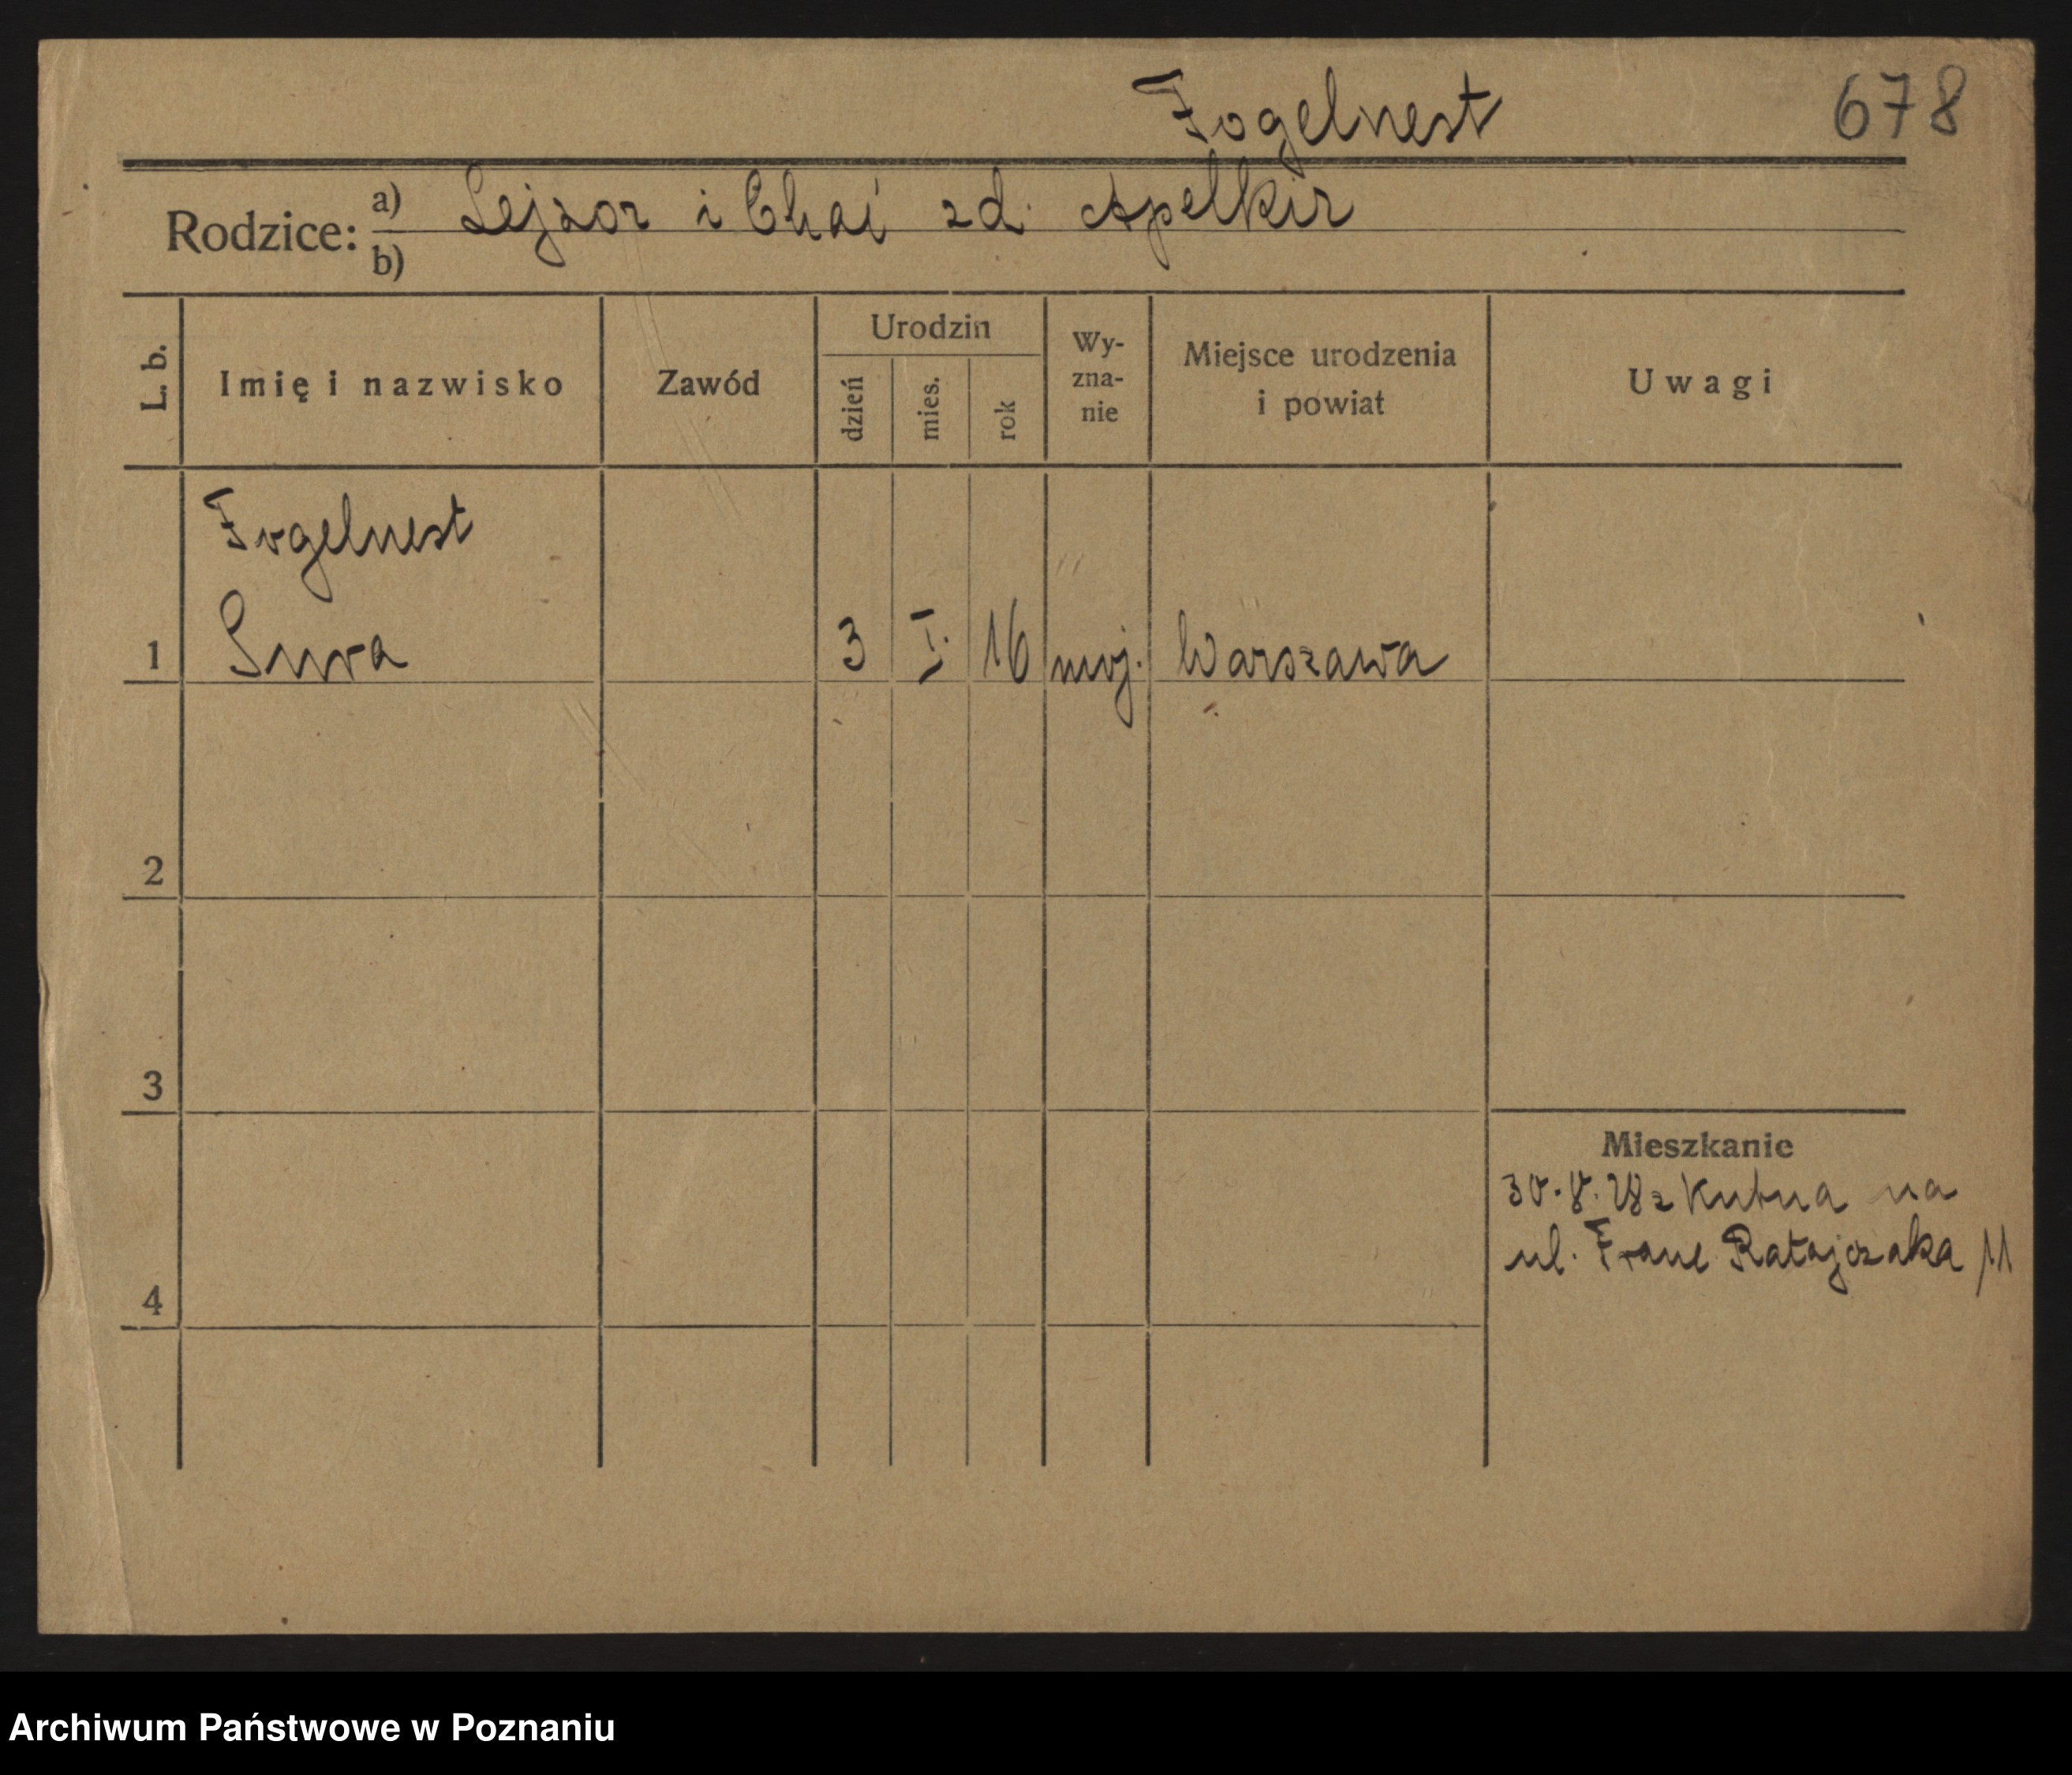 Fogelnest 678
Rodzice: a) Lejzor i Chai zd. Apelkir
b)
L. b. Imię i nazwisko Zawód Urodzin dzień mies. rok Wy-zna-nie Miejsce urodzenia i powiat Uwagi
Fogelnest
1 Sura 3 I. 16 moj. Warszawa
2
3
Mieszkanie
30.8.28 z Kutna na
ul. Franc Ratajczaka 11
4
Archiwum Państwowe w Poznaniu